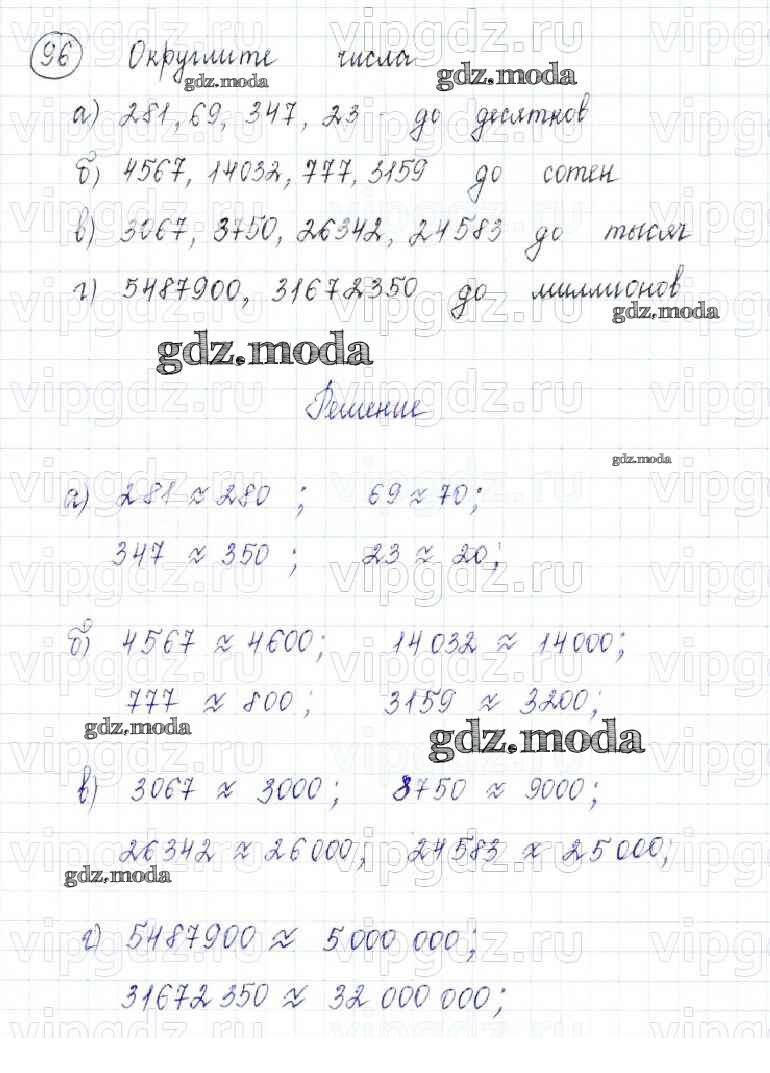 96 Округлите числа
gdz.moda gdz.moda
а) 281, 69, 347, 23 - до десятков
б) 4567, 14032, 777, 3159 до сотен
в) 3067, 3750, 26342, 24583 до тысяч
г) 5487900, 31672350 до миллионов
gdz.moda
gdz.moda
Решение
gdz.moda
а) 281 ≈ 280 ; 69 ≈ 70;
347 ≈ 350 ; 23 ≈ 20;
б) 4567 ≈ 4600; 14032 ≈ 14000;
777 ≈ 800 ; 3159 ≈ 3200;
gdz.moda gdz.moda
в) 3067 ≈ 3000 ; 8750 ≈ 9000;
26342 ≈ 26000; 24583 ≈ 25000;
gdz.moda
г) 5487900 ≈ 5 000 000;
31672 350 ≈ 32 000 000;
vipgdz.ru